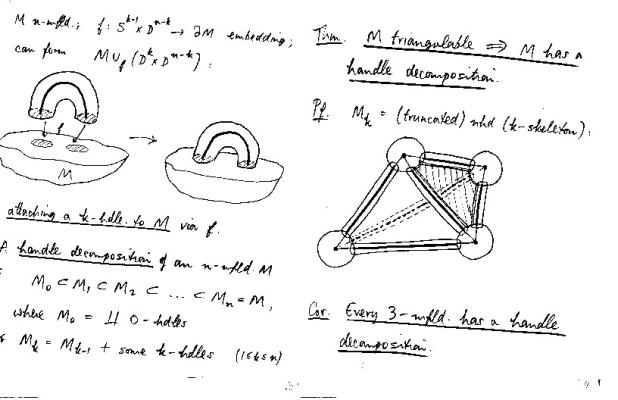 M n-mfld.; f: S^{k-1} × D^{n-k} → ∂M embedding;
can form M ∪_f (D^k × D^{n-k}):
f
M
attaching a k-hdle. to M via f.
handle decomposition of an n-mfld. M
M_0 ⊂ M_1 ⊂ M_2 ⊂ ... ⊂ M_n = M,
where M_0 = ⨿ 0-hdles
M_k = M_{k-1} + some k-hdles (1≤k≤n)
Thm. M triangulable ⇒ M has a
handle decomposition.
Pf. M_k = (truncated) nhd (k-skeleton):
Cor. Every 3-mfld. has a handle
decomposition.